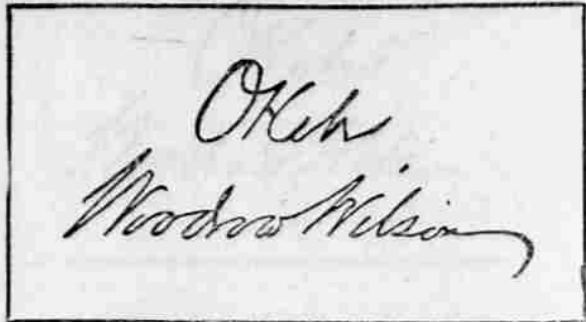 Okeh
Woodrow Wilson